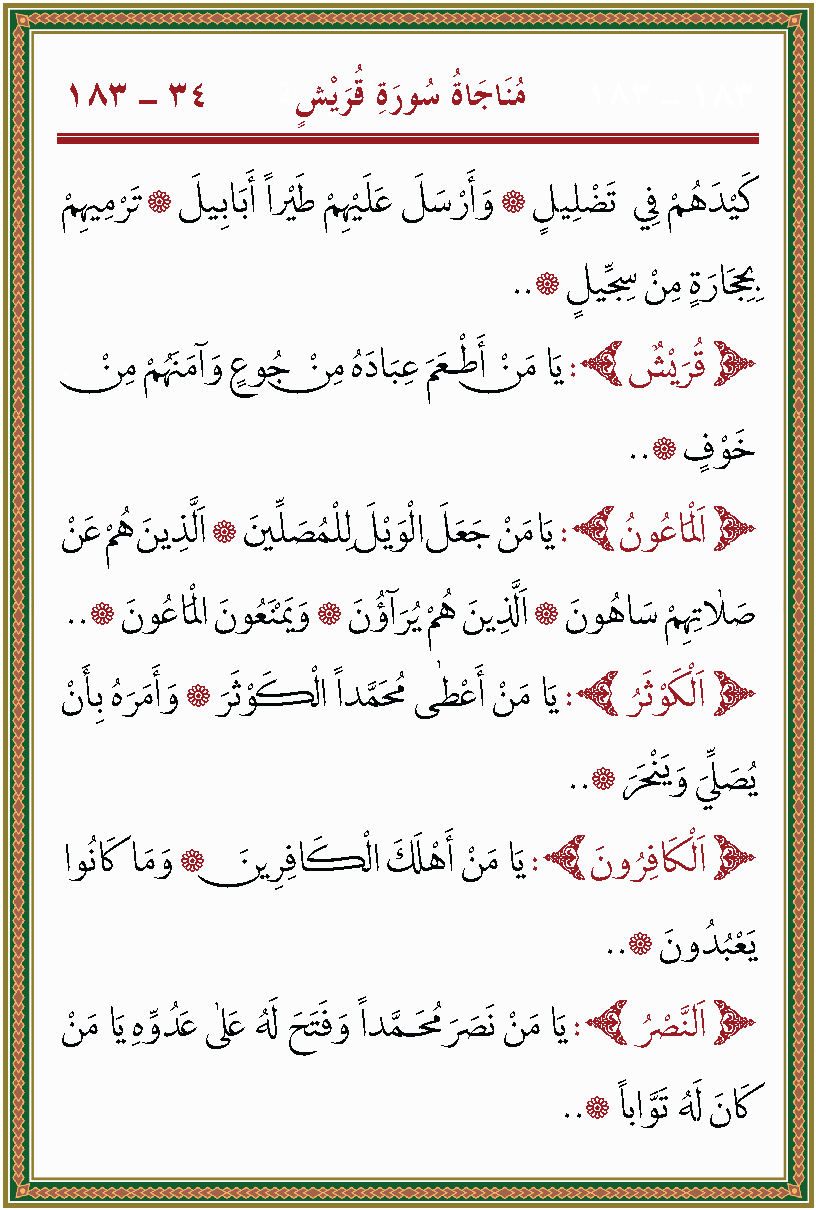 مُنَاجَاةُ سُورَةِ قُرَيْشٍ ٣٤ – ١٨٣
كَيْدَهُمْ فِي تَضْلِيلٍ ۞ وَأَرْسَلَ عَلَيْهِمْ طَيْراً أَبَابِيلَ ۞ تَرْمِيهِمْ
بِحِجَارَةٍ مِنْ سِجِّيلٍ ۞..
﴿ قُرَيْشٌ ﴾: يَا مَنْ أَطْعَمَ عِبَادَهُ مِنْ جُوعٍ وَآمَنَهُمْ مِنْ
خَوْفٍ ۞..
﴿ اَلْمَاعُونُ ﴾: يَا مَنْ جَعَلَ الْوَيْلَ لِلْمُصَلِّينَ ۞ اَلَّذِينَ هُمْ عَنْ
صَلَاتِهِمْ سَاهُونَ ۞ اَلَّذِينَ هُمْ يُرَآؤُنَ ۞ وَيَمْنَعُونَ الْمَاعُونَ ۞..
﴿ اَلْكَوْثَرُ ﴾: يَا مَنْ أَعْطٰى مُحَمَّداً الْكَوْثَرَ ۞ وَأَمَرَهُ بِأَنْ
يُصَلِّيَ وَيَنْحَرَ ۞..
﴿ اَلْكَافِرُونَ ﴾: يَا مَنْ أَهْلَكَ الْكَافِرِينَ ۞ وَمَا كَانُوا
يَعْبُدُونَ ۞..
﴿ اَلنَّصْرُ ﴾: يَا مَنْ نَصَرَ مُحَمَّداً وَفَتَحَ لَهُ عَلٰى عَدُوِّهِ يَا مَنْ
كَانَ لَهُ تَوَّاباً ۞..